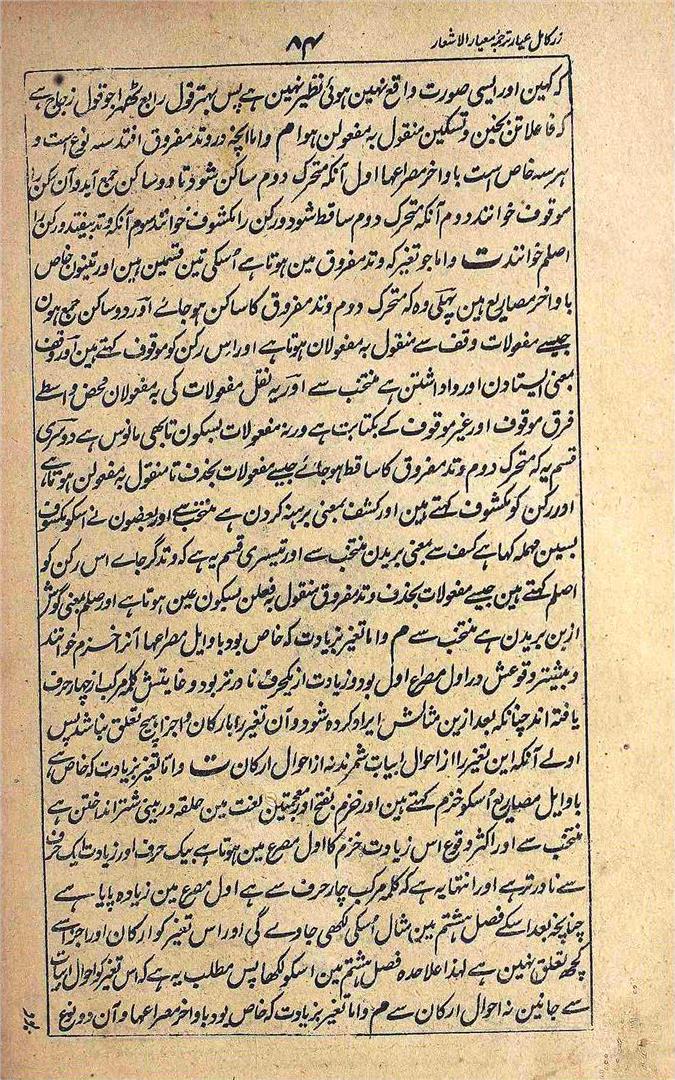 زر کامل عیار ترجمۂ معیار الاشعار
۸۴
کہ کہین اور ایسی صورت واقع نہین ہوئی نظیر نہین ہے پس بہتر قول رابع ٹھہرا جو قول زجاج ہے
کہ فاعلاتن بخبن و تسکین منقول بہ مفعولن ہوا م و اما انچہ در وتد مفروق افتد سہ نوع است و
ہر سہ خاص است باواخر مصراعہا اول آنکہ متحرک دوم ساکن شود تا دو ساکن جمع آید و آن رکن را
موقوف خوانند دوم آنکہ متحرک دوم ساقط شود و رکن را مکشوف خوانند سوم آنکہ وتد بیفتد و رکن را
اصلم خوانند ت و اما جو تغیر کہ وتد مفروق مین ہوتا ہے اُسکی تین قسمین ہین اور تینون خاص
باواخر مصاریع ہین پہلی وہ کہ متحرک دوم وتد مفروق کا ساکن ہو جائے اور دو ساکن جمع ہون
جیسے مفعولات وقف سے منقول بہ مفعولان ہوتا ہے اور اس رکن کو موقوف کہتے ہین اور وقف
بمعنی ایستادن اور واداشتن ہے منتخب سے اور یہ نقل مفعولات کی بہ مفعولان محض واسطے
فرق موقوف اور غیر موقوف کے بکتابت ہے ورنہ مفعولات بسکون تا بھی مانوس ہے دوسری
قسم یہ کہ متحرک دوم وتد مفروق کا ساقط ہو جائے جیسے مفعولات بحذف تا منقول بہ مفعولن ہوتا ہے
اور رکن کو مکشوف کہتے ہین اور کشف بمعنی برہنہ کردن ہے منتخب سے اور بعضون نے اسکو مکسوف
بسین مہملہ کہا ہے کسف سے بمعنی بریدن منتخب سے اور تیسری قسم یہ ہے کہ وتد گر جاے اس رکن کو
اصلم کہتے ہین جیسے مفعولات بحذف وتد مفروق منقول بہ فعلن بسکون عین ہوتا ہے اور صلم بمعنی گوش
از بن بریدن ہے منتخب سے م و اما تغیر بزیادت کہ خاص بود باوایل مصراعہا آنرا خزم خوانند
و بیشتر وقوعش در اول مصراع اول بود و زیادت از یکحرف نادرتر بود و غایتش کلمہ مرکب از چہار حرف
یافتہ اند چنانکہ بعد ازین مثالش ایراد کردہ شود و آن تغیر را بارکان و اجزا ہیچ تعلق نباشد پس
اولے آنکہ این تغیر را از احوال ابیات شمرند نہ از احوال ارکان ت و اما تغیر بزیادت کہ خاص ہے
باوایل مصاریع اُسکو خزم کہتے ہین اور خزم بفتح اور معجمتین لغت مین حلقہ در بینی شتر انداختن ہے
منتخب سے اور اکثر وقوع اس زیادت خزم کا اول مصرع مین ہوتا ہے بیک حرف اور زیادت ایک حرف
سے نادر تر ہے اور انتہا یہ ہے کہ کلمہ مرکب چار حرف سے ہے اول مصرع مین زیادہ پایا ہے
چنانچہ بعد اسکے فصل ہشتم مین مثال اُسکی لکھی جاوے گی اور اس تغیر کو ارکان اور اجزا سے
کچھ تعلق نہین ہے لہذا علاحدہ فصل ہشتم مین اسکو لکھا پس مطلب یہ ہے کہ اس تغیر کو احوال ابیات
سے جانین نہ احوال ارکان سے م و اما تغیر بزیادت کہ خاص بود باواخر مصراعہا و آن دو نوع